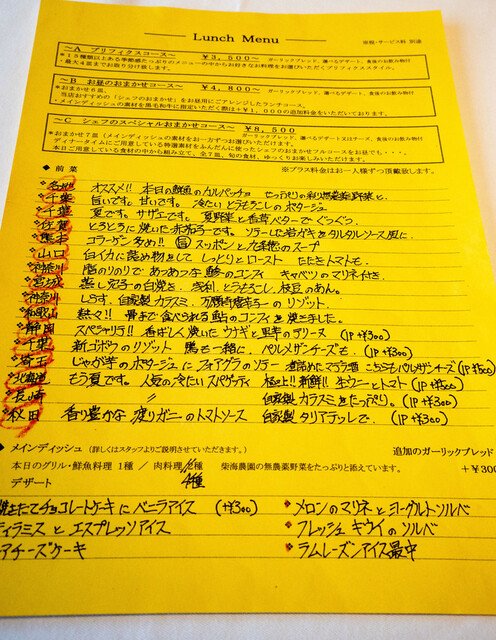 Lunch Menu
税税・サービス料 別途
～A プリフィクスコース～ ￥3,500～ ガーリックブレッド、選べるデザート、食後のお飲み物付
*15種類以上ある季節感たっぷりのメニューの中からお好きなお料理をお選びいただくプリフィクススタイル。
・最大4皿までお取り分け致します。
～B お昼のおまかせコース～ ￥4,800～ ガーリックブレッド、選べるデザート、食後のお飲み物付
*おまかせ6皿。
当店おすすめの「シェフのおまかせ」をお昼用にアレンジしたランチコース。
・メインディッシュの素材を黒毛和牛に指定いただく際は+￥1,000の追加料金をいただいております。
～C シェフのスペシャルおまかせコース～ ￥8,500
*おまかせ7皿（メインディッシュの素材をお一かずつお選びいただけます。 ガーリックブレッド、選べるデザート又はチーズ、食後のお飲み物付
ディナータイムにご用意している特選素材をふんだんに使ったシェフのおまかせフルコースをお昼でも・・・。
本日ご用意している食材の中から組み立て、全7皿、旬の食材、ゆっくりお楽しみいただけます。
◆ 前菜 ※プラス料金はお一人様ずつ頂戴致します。
オススメ!! 本日の鮮魚のカルパッチョ せっぷりの彩り野菜と.
千葉 旨いです。甘いです。 冷たいとうもろこしのポタージュ
千葉 夏です。サザエです。 夏野菜と香草バターでぐつぐつ.
佐賀 とろとろに焼いた赤茄子です。 ソテーした岩ガキとタルタルソース風に.
熊本 コラーゲン多め!! 旨 スッポンと九条葱のスープ
山口 白イカに詰め物をして しっとりとロースト たたきトマトも.
神奈川 脂のりのりで あつあつな鯵のコンフィ キャベツのマリネ付き.
宮城 蒸し穴子の白焼き、 浅利、とうもろこし、枝豆のあん。
神奈川 しらす、自家製カラスミ、万願寺唐辛子の リゾット.
和歌山 骨まで食べられる鮎のコンフィを焼きました。
静岡 スペシャリテ!! 香ばしく焼いたウナギと野菜のテリーヌ (1P +¥300)
千葉 新ゴボウのリゾット 鴨も一緒に. パルメザンチーズも. (1P +¥300)
埼玉 じゃが芋のポタージュに フォアグラのソテー こちらもパルメザンチーズ (1P +¥500)
北海道 もう夏です. 人気の冷たいスパゲティ 極上!! 新鮮!! 生ウニとトマト (1P +¥500)
長崎 〃 自家製カラスミをたっぷり。 (1P +¥300)
秋田 香り豊かな 渡りガニのトマトソース 自家製タリアテッレで. (1P +¥300)
◆ メインディッシュ（詳しくはスタッフよりご説明させていただきます。） 追加のガーリックブレッド
本日のグリル・鮮魚料理 1種 ／ 肉料理 2種 柴海農園の無農薬野菜をたっぷりと添えています。 +￥300
デザート 4種
焼きたてチョコレートケーキにバニラアイス (+¥300) ◆メロンのマリネとヨーグルトソルベ
ティラミスとエスプレッソアイス ◆フレッシュ キウイのソルベ
アチーズケーキ ◆ラムレーズンアイス最中